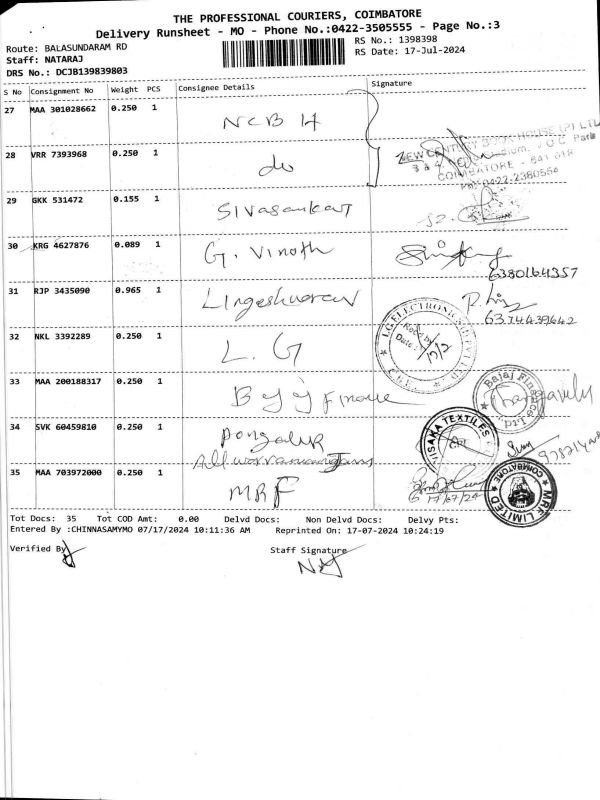 THE PROFESSIONAL COURIERS, COIMBATORE
Delivery Runsheet - MO - Phone No.:0422-3505555 - Page No.:3
Route: BALASUNDARAM RD
RS No.: 1398398
Staff: NATARAJ
RS Date: 17-Jul-2024
DRS No.: DCJB139839803
S No Consignment No Weight PCS Consignee Details Signature
27 MAA 301028662 0.250 1 NCB H
28 VRR 7393968 0.250 1 do
NEW CENTURY BOOK HOUSE (P) LTD
COIMBATORE - 641 018
Ph: 0422-2380554
29 GKK 531472 0.155 1 Sivasankar
30 KRG 4627876 0.089 1 G. Vinoth
6380164357
31 RJP 3435090 0.965 1 Lingeshwaran
32 NKL 3392289 0.250 1 L. G
Date:
33 MAA 200188317 0.250 1 Bajaj Finance
Bajaj Finance Ltd
34 SVK 60459810 0.250 1
VISAKA TEXTILES
35 MAA 703972000 0.250 1 MRF
17/07/24
MRF LIMITED
COIMBATORE
Tot Docs: 35 Tot COD Amt: 0.00 Delvd Docs: Non Delvd Docs: Delvy Pts:
Entered By :CHINNASAMYMO 07/17/2024 10:11:36 AM Reprinted On: 17-07-2024 10:24:19
Verified By
Staff Signature